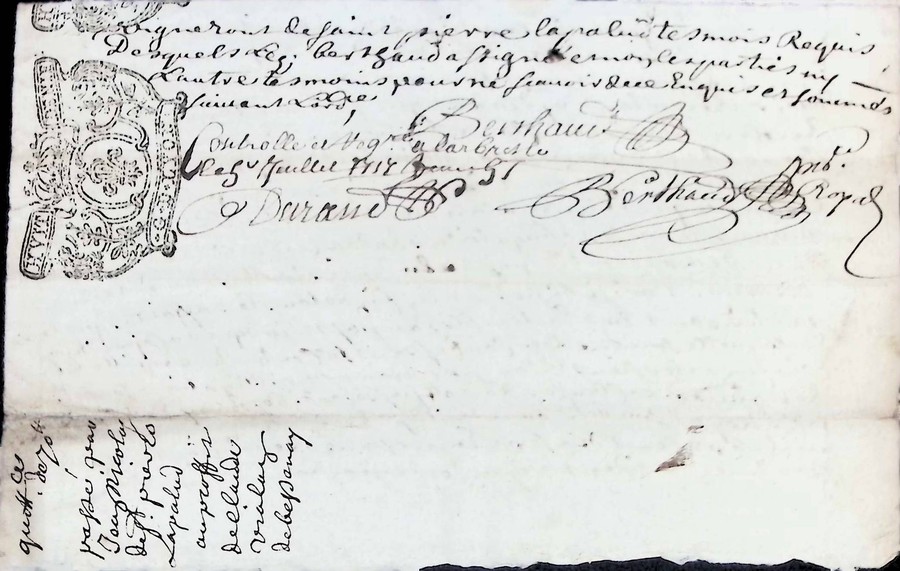 vigneront de saint pierre la palud tesmois Requis
Desquels led. berthaud a signé e moy les parties ny
L'autre tesmoins pour ne scavoir de ce Enquis et sommés
suivant Lord.e
Berthaud
Controlle et Reg.ré a Larbresle
Le juillet
Durand
Berthaud
No.re Royal
quott. de 70 lt
passé par
Jean Nicolas
de st pierre
Lapalud
au proffit
de Claude
Vialay
de bessenay